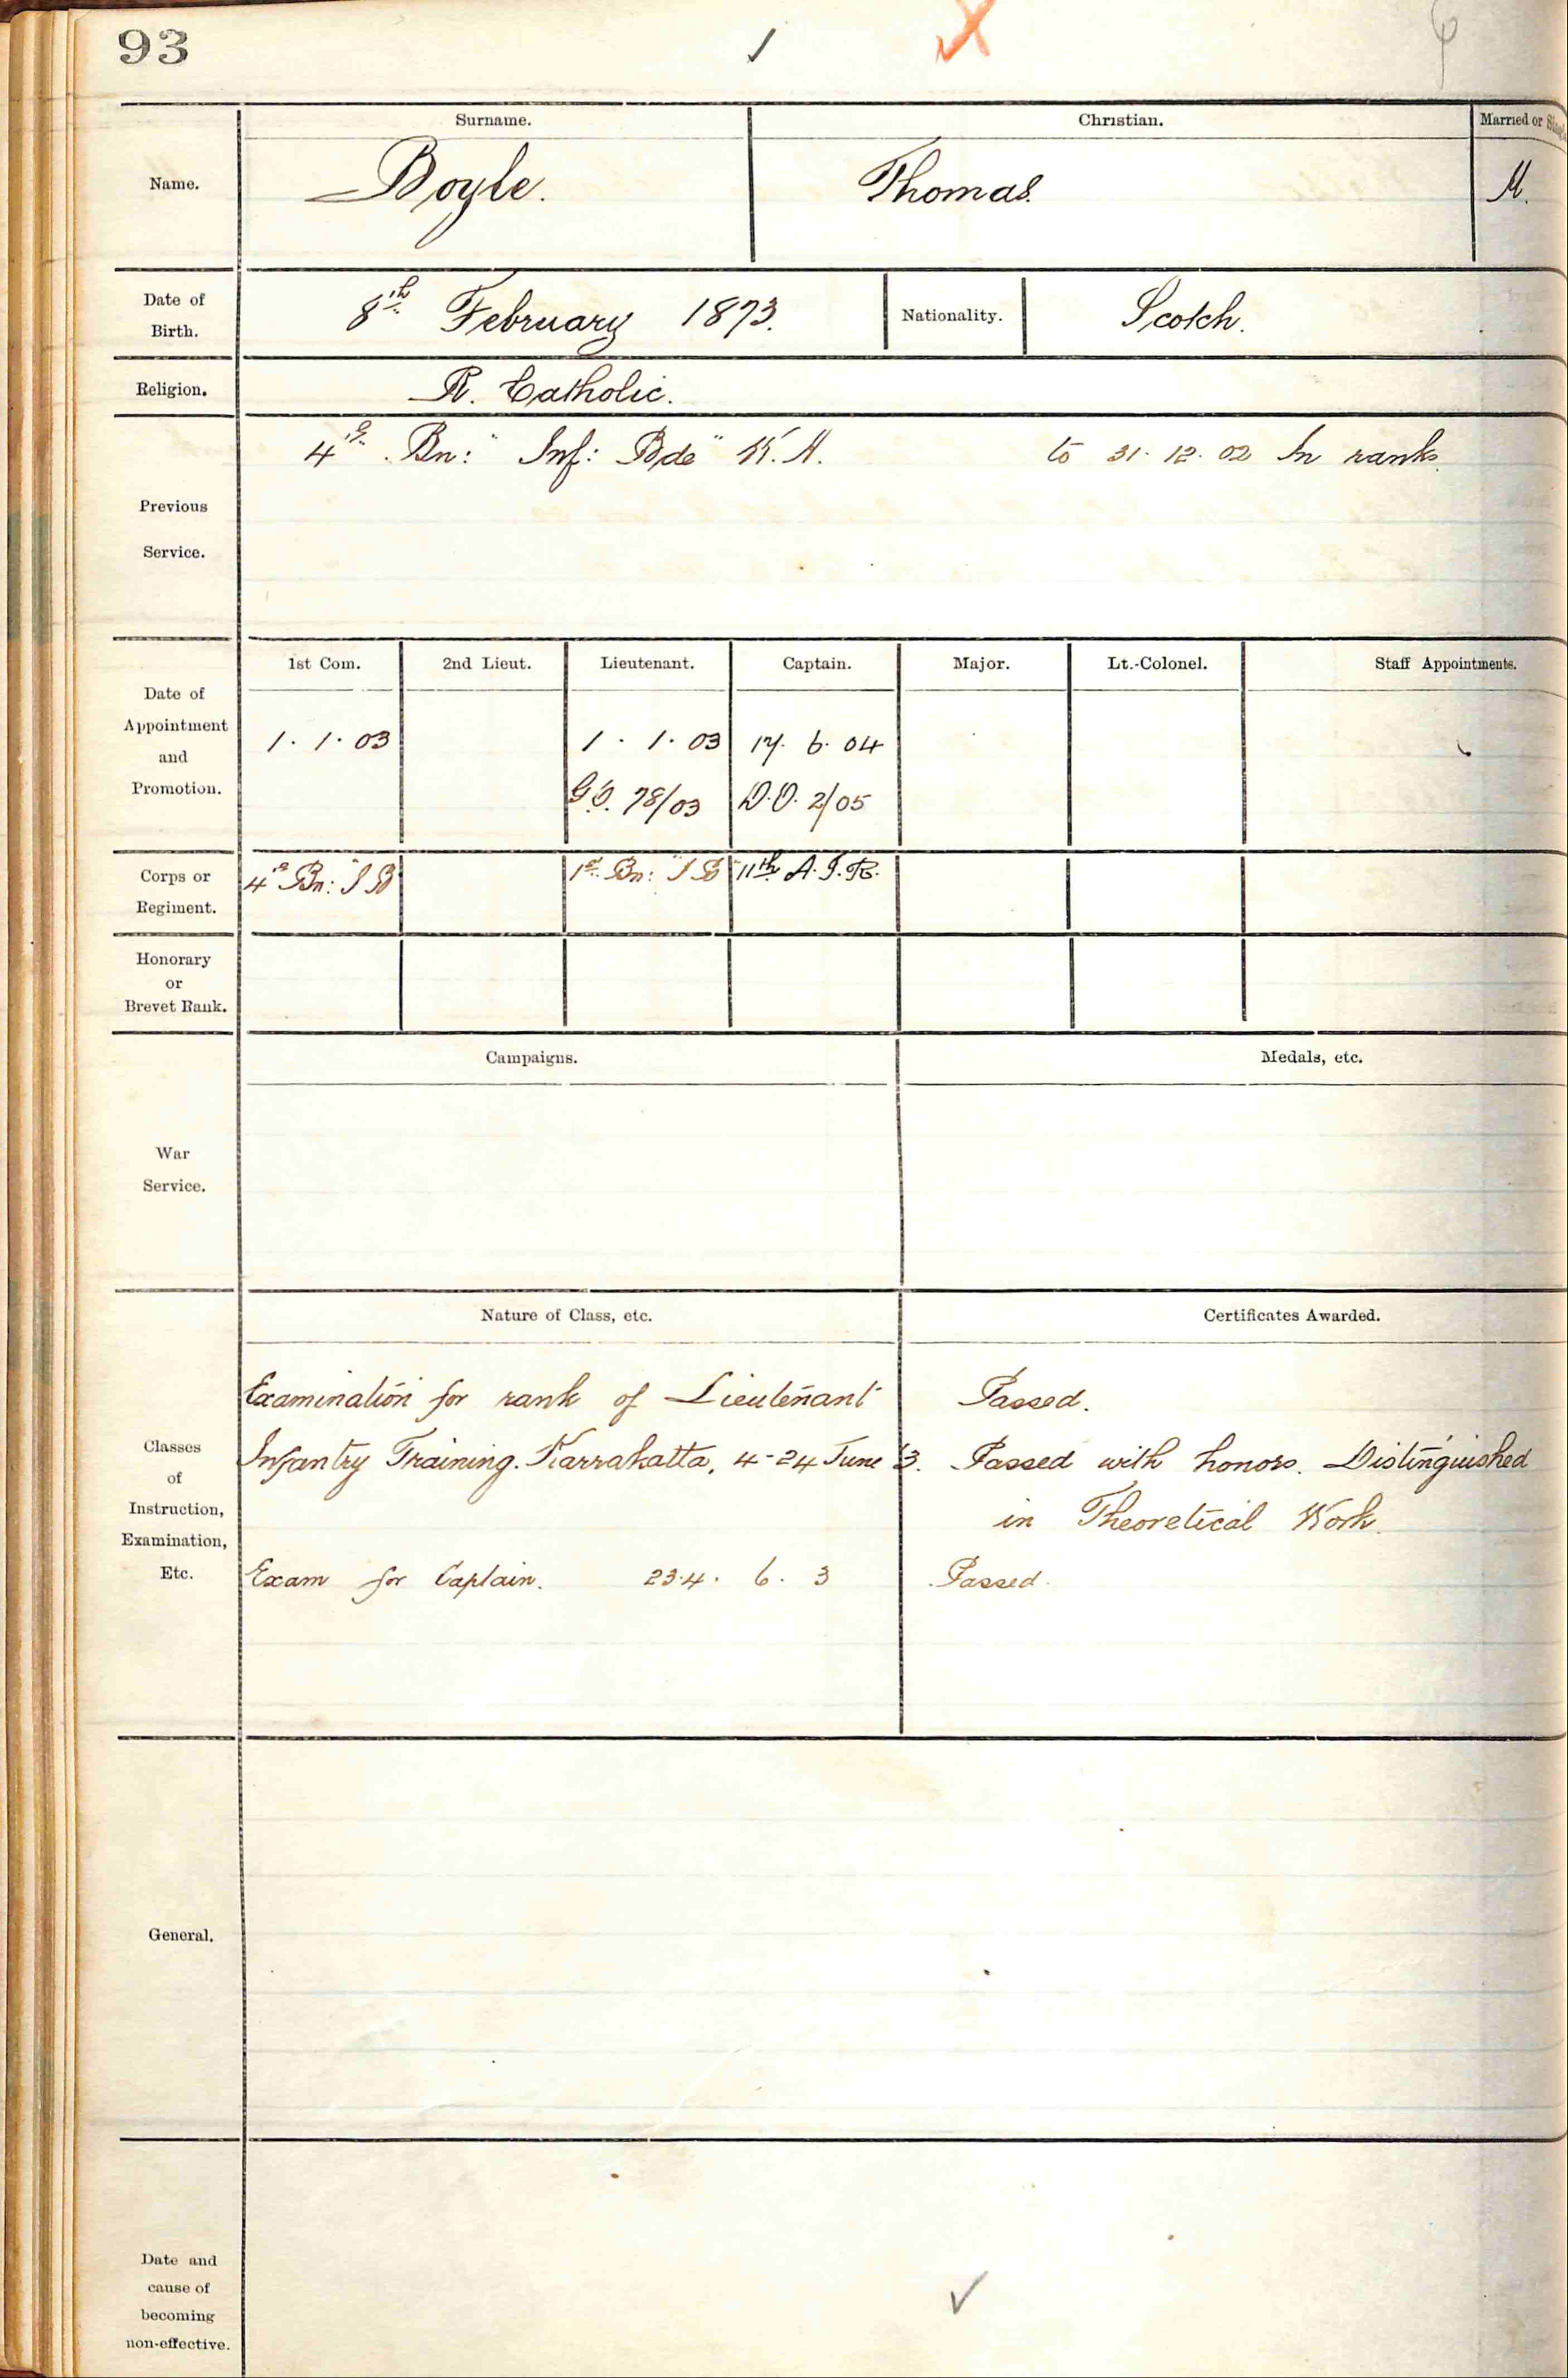 93
Surname. Christian. Married or
Name. Boyle. Thomas. M.
Date of Birth. 8th February 1873. Nationality. Scotch.
Religion. R. Catholic.
Previous Service. 4th Bn: "Inf: Bde" W.A. to 31.12.02 In ranks
1st Com. 2nd Lieut. Lieutenant. Captain. Major. Lt.-Colonel. Staff Appointments.
Date of Appointment and Promotion.
1.1.03 1.1.03 17.6.04
G.O. 78/03 D.O. 2/05
Corps or Regiment. 4th Bn: I B 1st Bn: I B 11th A.I.R.
Honorary or Brevet Rank.
Campaigns. Medals, etc.
War Service.
Nature of Class, etc. Certificates Awarded.
Classes of Instruction, Examination, Etc.
Examination for rank of Lieutenant Passed.
Infantry Training. Karrakatta, 4-24 June 03. Passed with honors. Distinguished
in Theoretical Work.
Exam for Captain. 23.4. 6. 3 Passed.
General.
Date and cause of becoming non-effective.